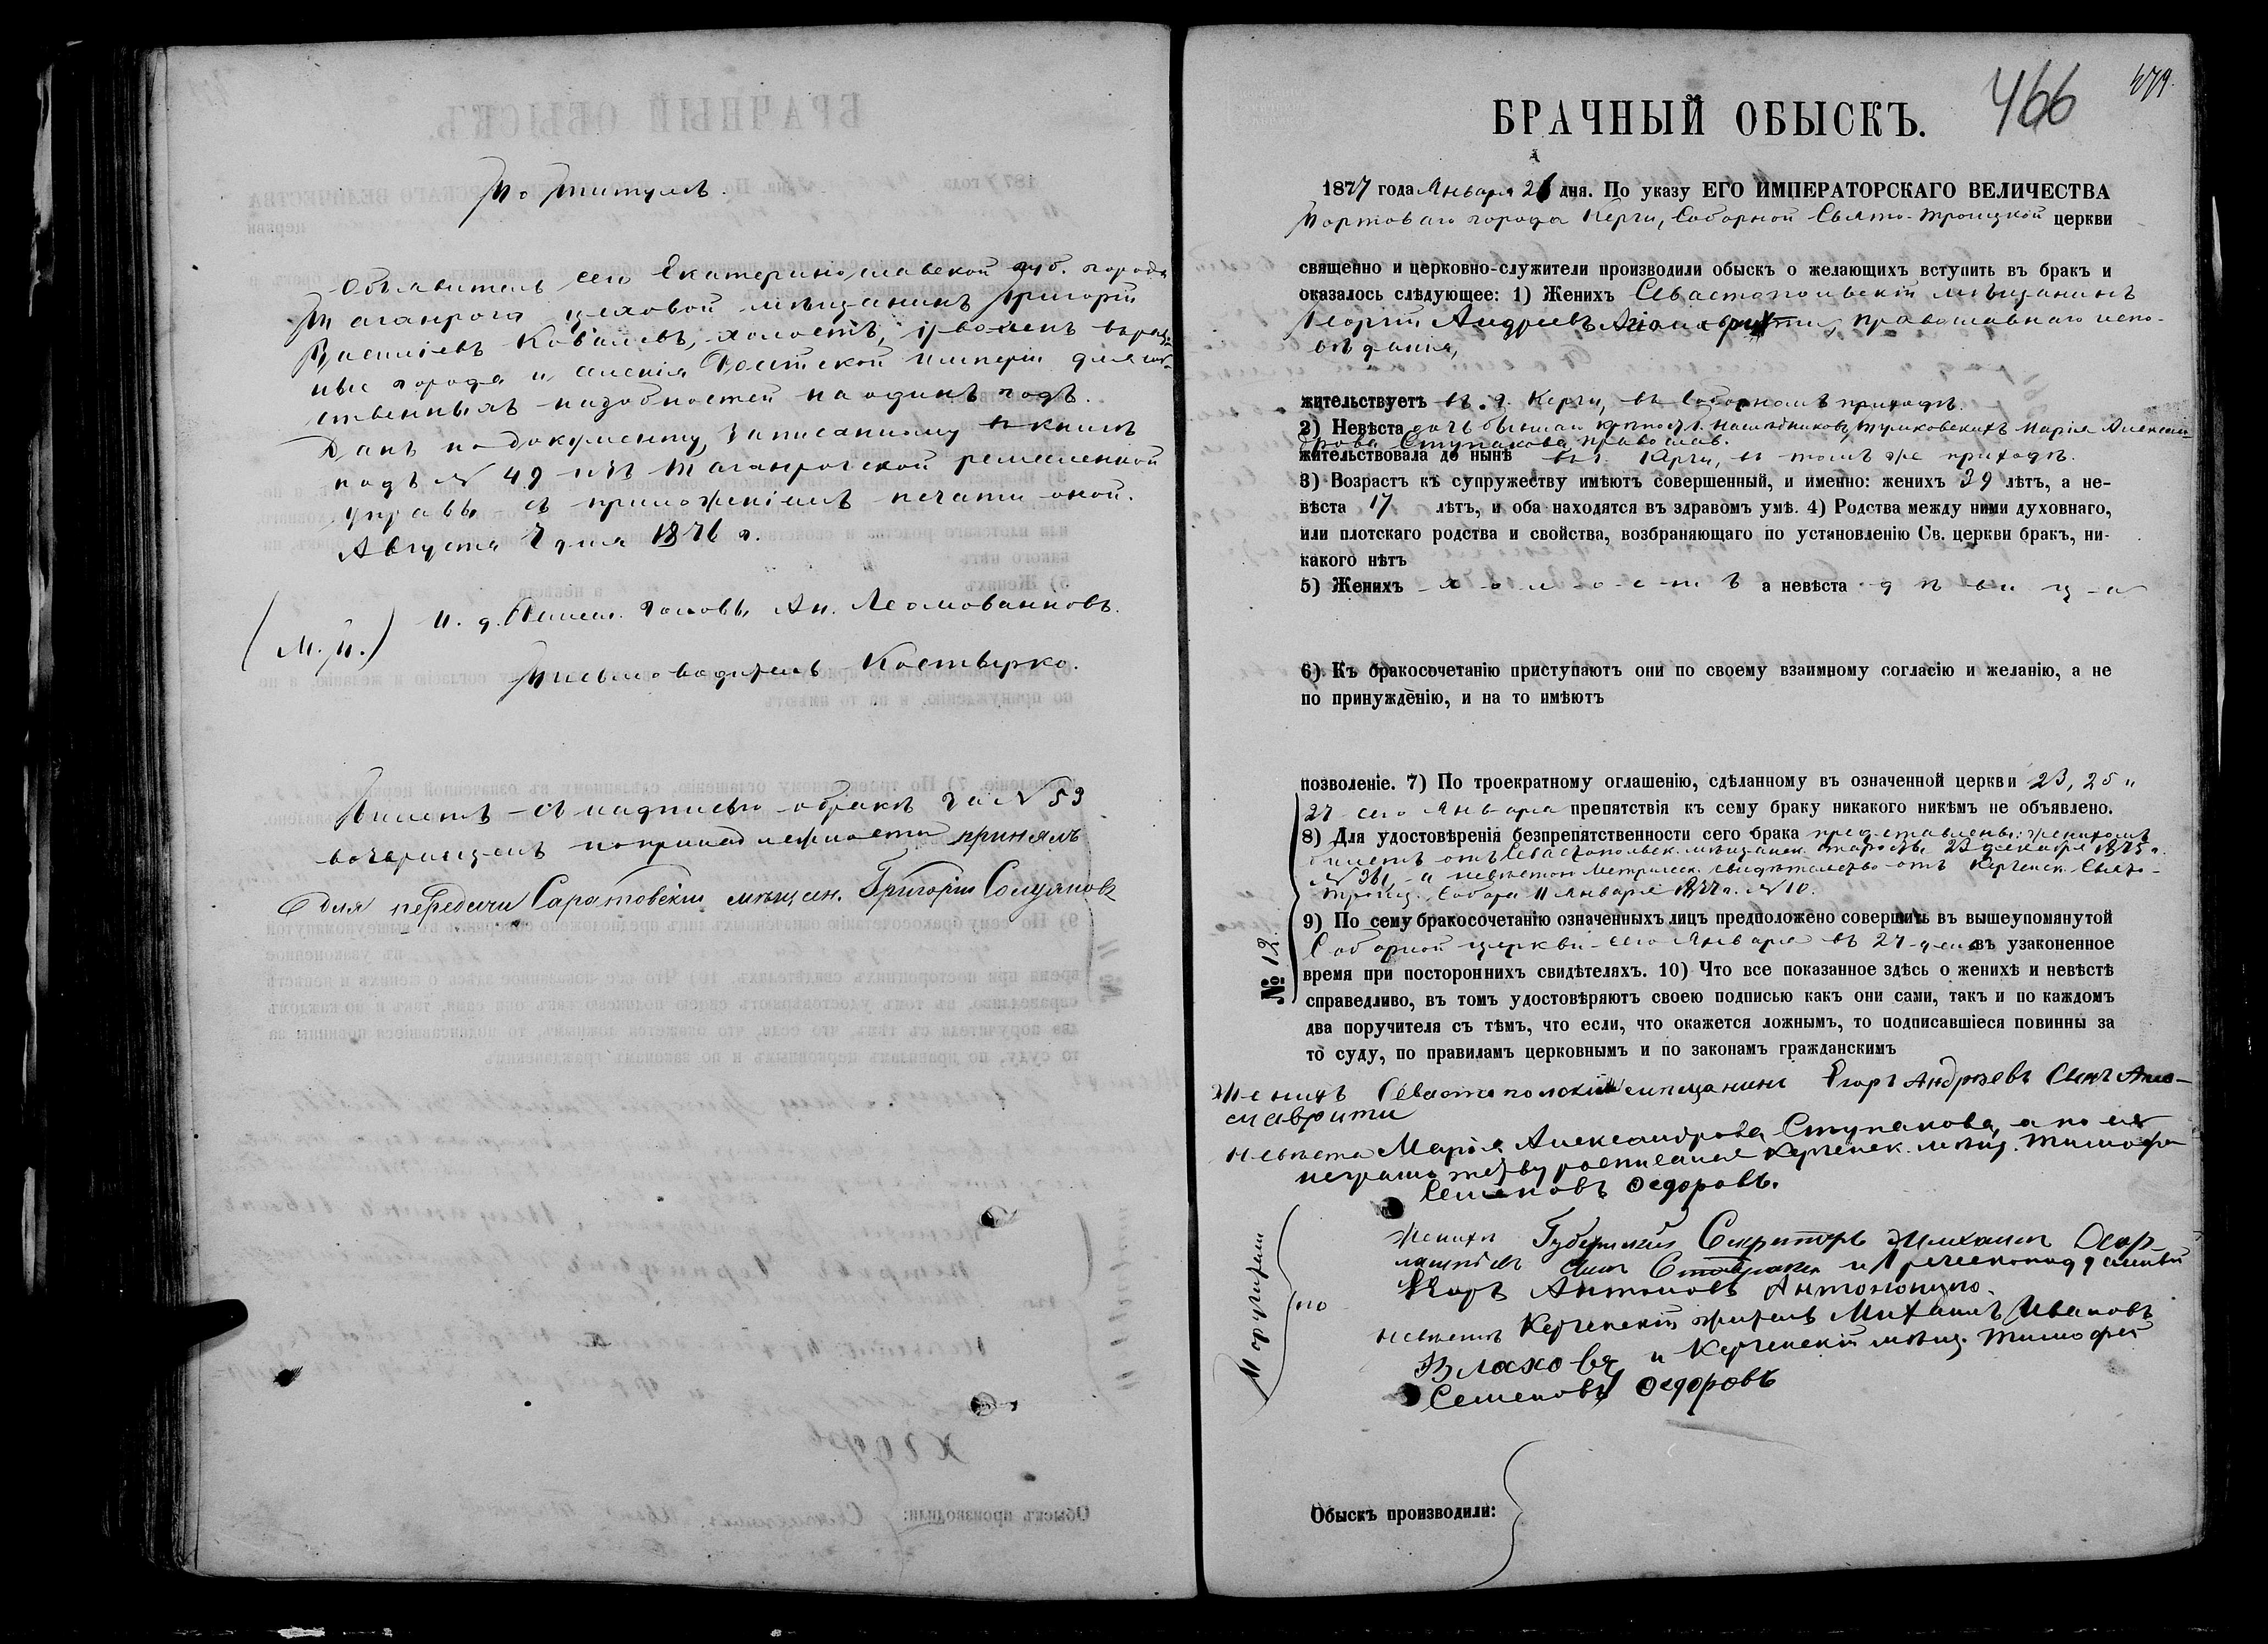 По титулѣ.
Объявитель сего Екатеринославской губ. города
Таганрога цеховой мѣщанинъ Григорій
Василіевъ Ковалевъ, холостъ, уволенъ въ разн-
ные города и селенія Россійской Имперіи для соб-
ственныхъ надобностей на одинъ годъ.
Данъ по документу, записанному въ книгѣ
подъ № 49 изъ Таганрогской ремесленной
управы съ приложеніемъ печати оной.
Августа дня 1876 г.
И. д. Ремесл. Головы Ан.
(М. П.)
Письмоводитель Костырко.
Билетъ съ надписью о бракѣ за № 53
вѣнчанія по принадлежности принялъ
для передачи Саратовскій мѣщан. Григорій
466
479.
БРАЧНЫЙ ОБЫСКЪ.
1877 года Января 26 дня. По указу ЕГО ИМПЕРАТОРСКАГО ВЕЛИЧЕСТВА
Портоваго города Керчи, Соборной Свято-Троицкой церкви
священно и церковно-служители производили обыскъ о желающихъ вступить въ бракъ и
оказалось слѣдующее: 1) Женихъ Севастопольскій мѣщанинъ
Георгій Андреевъ православнаго испо-
вѣданія,
жительствуетъ въ г. Керчи, въ Соборномъ приходѣ.
2) Невѣста дочь бывшей крѣпост. наслѣдниковъ Тумковскихъ Марія Алексан-
дрова Ступакова православ.
жительствовала до нынѣ въ г. Керчи, въ томъ же приходѣ.
3) Возрастъ къ супружеству имѣютъ совершенный, и именно: женихъ 29 лѣтъ, а не-
вѣста 17 лѣтъ, и оба находятся въ здравомъ умѣ. 4) Родства между ними духовнаго,
или плотскаго родства и свойства, возбраняющаго по установленію Св. церкви бракъ, ни-
какого нѣтъ
5) Женихъ х-о-л-о-с-т-ъ а невѣста д ѣ в и ц-а
6) Къ бракосочетанію приступаютъ они по своему взаимному согласію и желанію, а не
по принужденію, и на то имѣютъ
позволеніе. 7) По троекратному оглашенію, сдѣланному въ означенной церкви 23, 25 и
27 сего Января препятствія къ сему браку никакого никѣмъ не объявлено.
8) Для удостовѣренія безпрепятственности сего брака представлены: женихомъ
билетъ отъ Севастопольск. мѣщанск. старосты 23 декабря 1875 г.
№ 361, а невѣстою Метрическ. свидѣтельство отъ Керченск. Свято-
Троиц. Собора 11 Января 1877 г. № 10.
9) По сему бракосочетанію означенныхъ лицъ предположено совершить въ вышеупомянутой
Соборной церкви сего Января въ 27 день въ узаконенное
время при постороннихъ свидѣтеляхъ. 10) Что все показанное здѣсь о женихѣ и невѣстѣ
справедливо, въ томъ удостовѣряютъ своею подписью какъ они сами, такъ и по каждомъ
два поручителя съ тѣмъ, что если, что окажется ложнымъ, то подписавшіеся повинны за
то суду, по правиламъ церковнымъ и по законамъ гражданскимъ
№ 12.
Женихъ Севастополскій мещанинъ Егоръ Андрѣевъ Сынъ Апо-
славрити
Невѣста Марія Александрова Ступакова, а по ея
неграмотству росписался Керченск. мѣщ. Тимофей
Семеновъ Ѳедоровъ.
Поручители
по
женихѣ Губернскій Секретарь Михаилъ
сынъ Ставраки и Греческоподданный
Егоръ Антоновъ Антонопуло.
невѣстѣ Керченскій житель Михаилъ Ивановъ
Влахова и Керченскій мѣщ. Тимофей
Семеновъ Ѳедоровъ
Обыскъ производили: